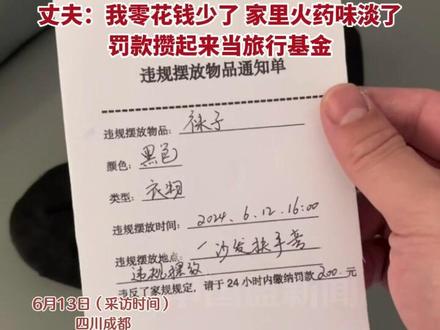 丈夫：我零花钱少了 家里火药味淡了
罚款攒起来当旅行基金
违规摆放物品通知单
违规摆放物品：袜子
颜色：黑色
类型：衣物
违规摆放时间：2024.6.12.16:00
违规摆放地点：沙发扶手旁
违规摆放
违反了家规规定，请于24小时内缴纳罚款200元
6月13日（采访时间）
四川成都